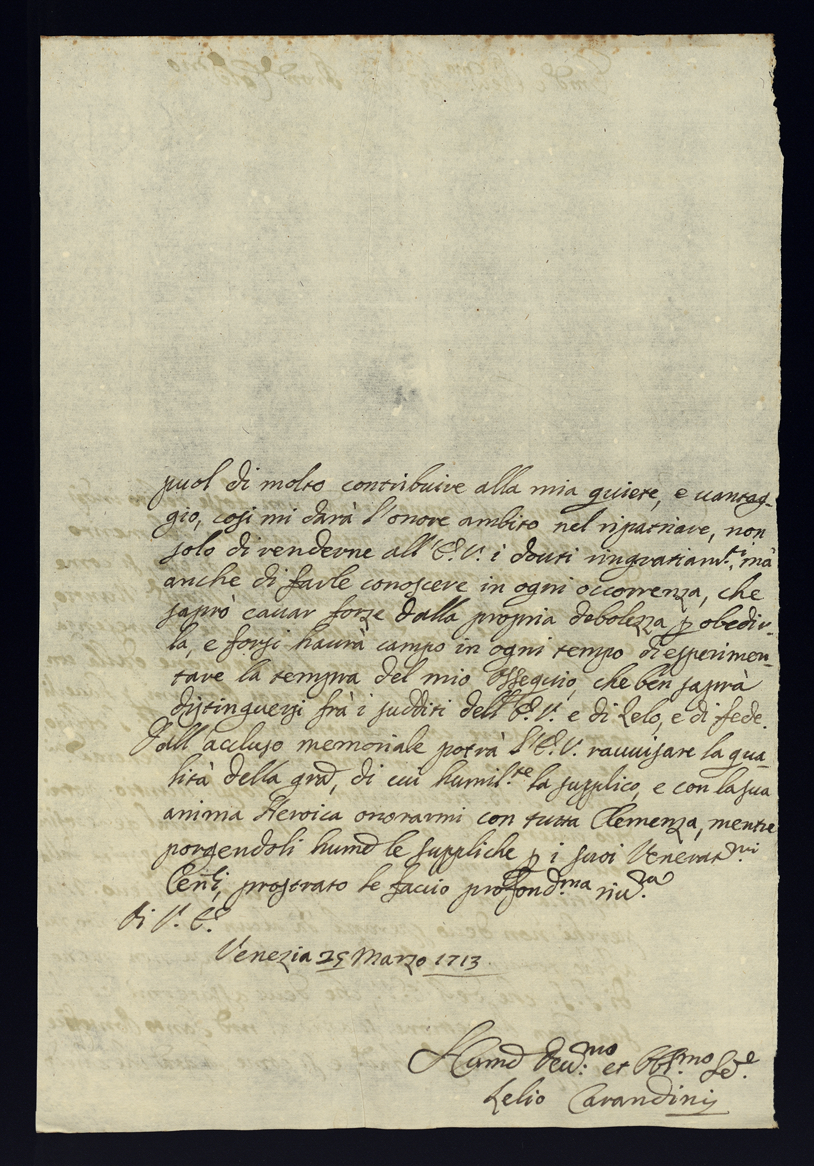 puol di molto contribuire alla mia quiete, e uantag-
gio, cosi mi darà l'onore ambito nel ripatriare, non
solo di renderne all'E.V. i douti ringratiam.ti, mà
anche di farle conoscere in ogni occorrenza, che
saprò cauar forze dalla propria debolezza p obedir-
la, e forsi haurà campo in ogni tempo di esperimen-
tare la tempra del mio Ossequio, che ben saprà
distinguersi frà i sudditi dell'E.V. e di zelo, e di fede.
Dall'accluso memoriale potrà l'E.V. rauuisare la qua-
lità della gra, di cui humil.te la supplico, e con la sua
anima Heroica onorarmi con tutta Clemenza, mentre
porgendoli hum.e le suppliche p i suoi Venerat.mi
Cenni, prostrato le faccio profond.ma riu.a
Di V.E.
Venezia 25 Marzo 1713.
Hum.o Deu.mo et Obl.mo Se.e
Lelio Carandinij